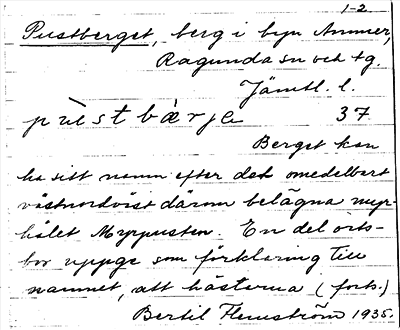 1-2
Pustberget, berg i byn Ammer,
Ragunda sn och tg.
Jämtl. l.
pùstbàrje 37
Berget kan
ha sitt namn efter det omedelbart
västnordväst därom belägna myr-
hålet Myrpusten. En del orts-
bor uppge som förklaring till
namnet, att hästarna (forts.)
Bertil Flemström 1935.